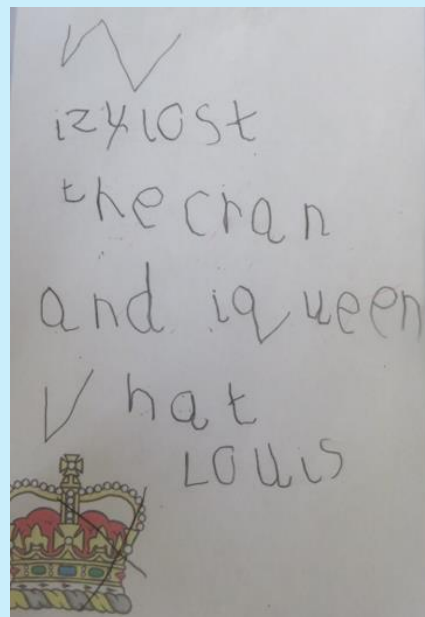 W
izylost
the cran
and iqueen
V hat
Louis